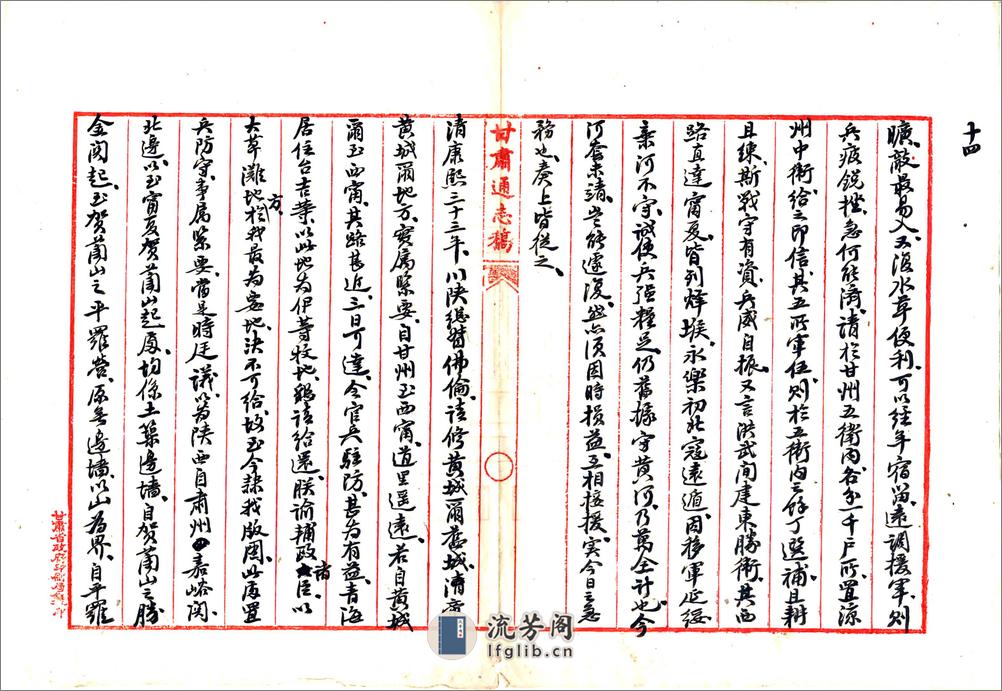 十四
曠敵最易入又復水草便利可以經年宿留遠調援軍則
兵疲銳挫急何能濟請於甘州五衛內各分一千戶所置涼
州中衛給之印信其五所軍伍則於五衛內之餘丁選補且耕
且練斯戰守有資兵威自振又言洪武間建東勝衛其西
路直達甯夏皆列烽堠永樂初北寇遠遁因移軍延綏
棄河不守誠使兵強糧足仍舊據守黃河乃萬全計也今
河套未清豈能遽復然亦須因時損益互相接援寔今日之急
務也奏上皆從之
甘肅通志稿
清康熙三十三年川陝總督佛倫請修黃城爾舊城清帝
黃城爾地方實屬緊要自甘州至西甯道里遥遠若自黃城
爾至西甯其路甚近三日可達令官兵駐防甚為有益青海
居住台吉等以此地為伊等牧地請給還朕諭輔政諸臣以
大草灘地方於我最為要地決不可給故至今隸我版圖此處置
兵防守事属緊要當是時廷議以為陝西自肅州嘉峪関
北邊以至甯夏賀蘭山起處均係土築邊墻自賀蘭山之勝
金関起至賀蘭山之平羅營原無邊墻以山為界自平羅
甘肅省政府印刷局承印
流芳阁
lfglib.cn